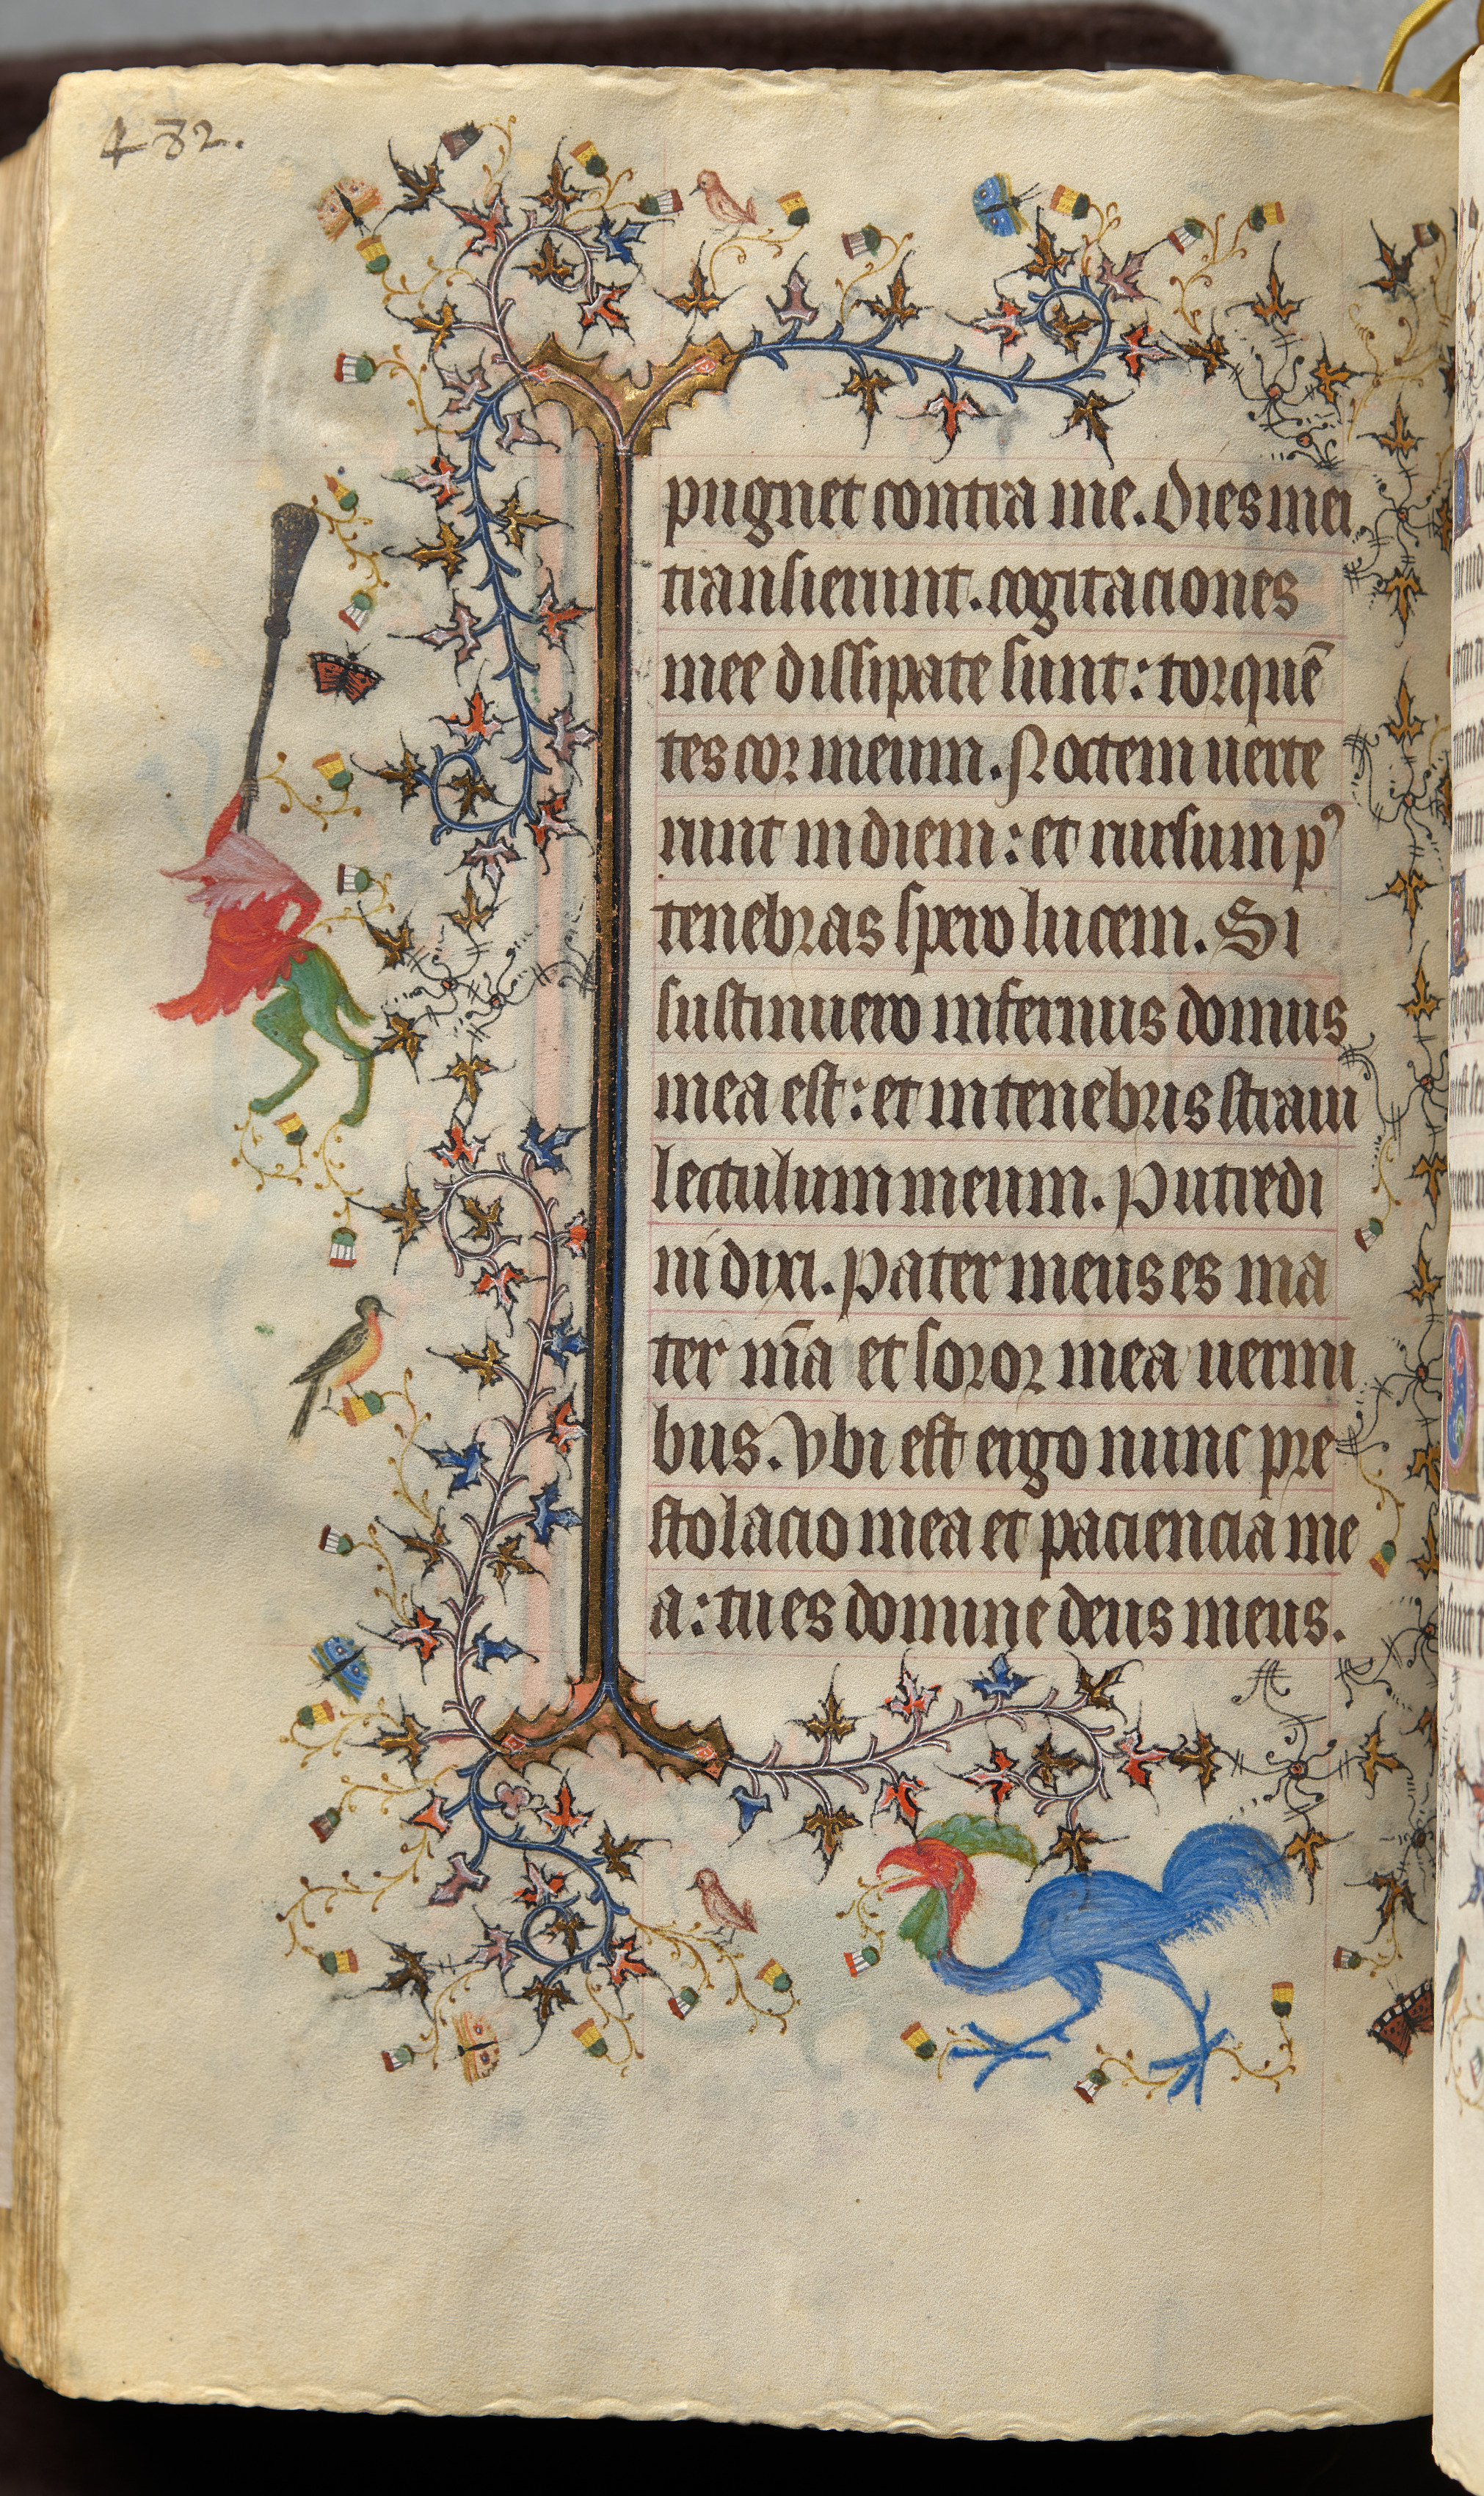 432.
pugnet contra me. Dies mei
transierunt. cogitaciones
mee dissipate sunt: torquē
tes cor meum. Noctem uerte
runt in diem: et rursum pꝰ
tenebras spero lucem. Si
sustinuero infernus domus
mea est: et in tenebris straui
lectulum meum. Putredi
ni dixi. pater meus es ma
ter m̄a et soror mea uermi
bus. Vbi est ergo nunc pre
stolacio mea et paciencia me
a: tu es domine deus meus.